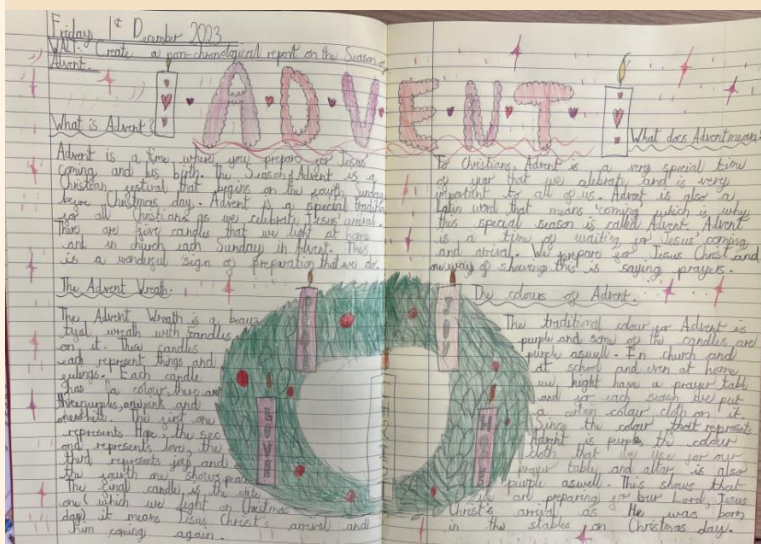 Friday 1st December 2023
WALT: Create a non-chronological report on the Season of
Advent.
ADVENT
What is Advent?
Advent is a time where you prepare for Jesus'
coming and his birth. The Season of Advent is a
Christian festival that begins on the fourth Sunday
before Christmas day. Advent is a special tradition
for all Christians as we celebrate Jesus' arrival.
There are five candles that we light at home
and in church each Sunday in Advent. This
is a wonderful sign of preparation that we do.
The Advent Wreath.
The Advent Wreath is a beau-
tiful wreath with candles
on it. These candles
each represent things and
feelings. Each candle
has a colour, there are
three purples, one pink and
one white. The first one
represents Hope, the sec
ond represents love, the
third represents joy and
the fourth one shows peace
The final candle is the white
one (which we light on Christmas
day) it means Jesus Christ's arrival and
him coming again.
What does Advent mean?
For Christians, Advent is a very special time
of year that we celebrate and is very
important to all of us. Advent is also a
Latin word that means 'coming' which is why
this special season is called Advent. Advent
is a time of waiting for Jesus' coming
and arrival. We prepare for Jesus Christ and
one way of showing this is saying prayers.
The colours of Advent.
The traditional colour for Advent is
purple and some of the candles are
purple aswell. In church and
at school and even at home
we might have a prayer table
and for each season we put
a certain colour cloth on it.
Since the colour that represents
Advent is purple, the colour
cloth that we use for our
prayer table and altar is also
purple aswell. This shows that
we are preparing for our Lord, Jesus
Christ's arrival as He was born
in the stables on Christmas day.
JOY
LOVE
HOPE